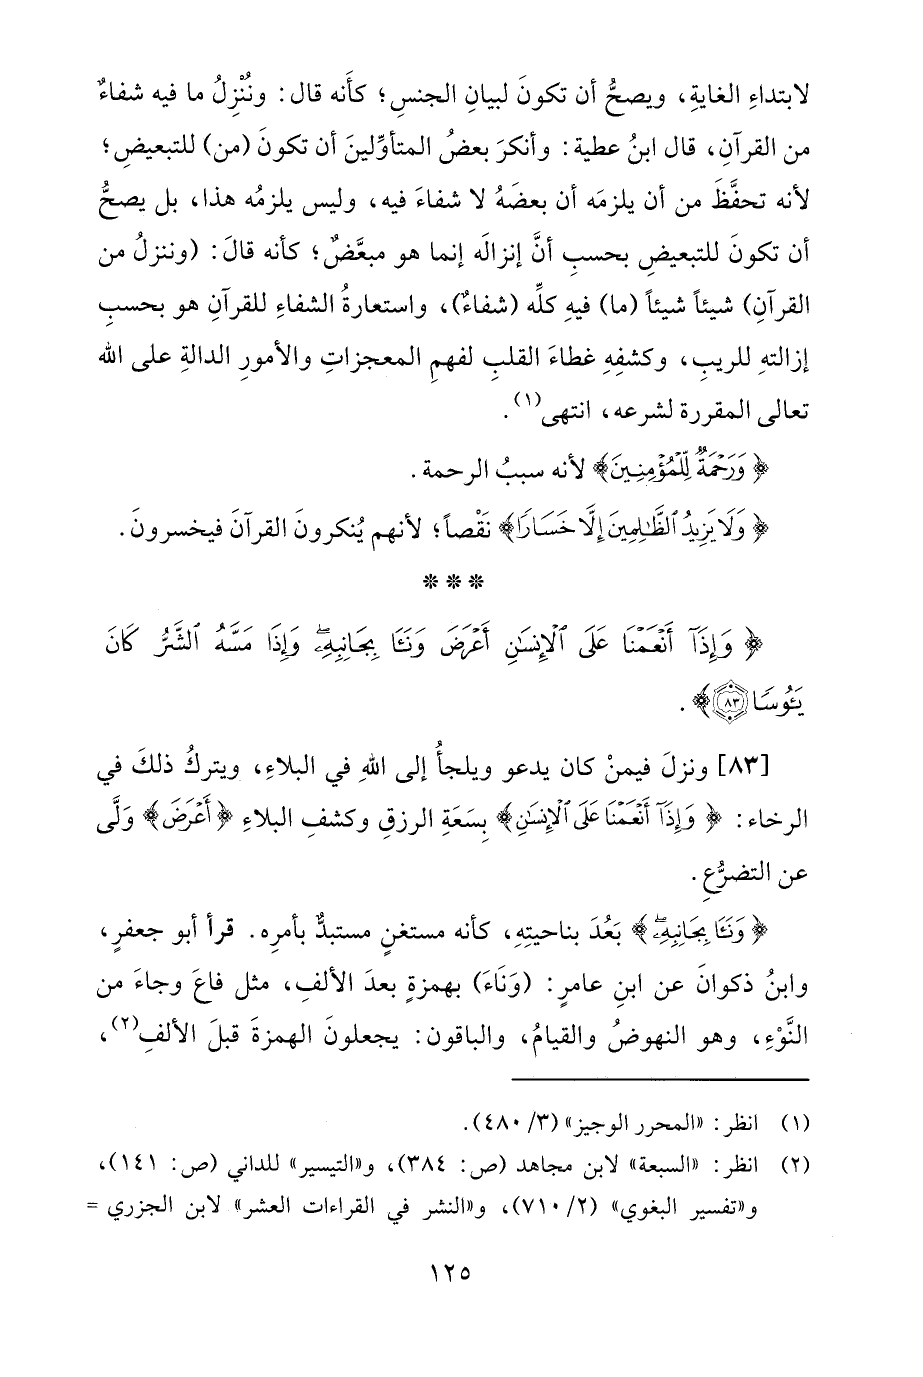 لابتداءِ الغايةِ، ويصحُّ أن تكونَ لبيانِ الجنسِ؛ كأَنه قال: ونُنْزِلُ ما فيه شفاءٌ
من القرآنِ، قال ابنُ عطية: وأنكرَ بعضُ المتأوِّلينَ أن تكونَ (من) للتبعيضِ؛
لأنه تحفَّظَ من أن يلزمَه أن بعضَهُ لا شفاءَ فيه، وليس يلزمُه هذا، بل يصحُّ
أن تكونَ للتبعيضِ بحسبِ أنَّ إنزالَه إنما هو مبعَّضٌ؛ كأنه قالَ: (وننزلُ من
القرآنِ) شيئاً شيئاً (ما) فيهِ كلِّه (شفاءٌ)، واستعارةُ الشفاءِ للقرآنِ هو بحسبِ
إزالتهِ للريبِ، وكشفِهِ غطاءَ القلبِ لفهمِ المعجزاتِ والأمورِ الدالةِ على الله
تعالى المقررة لشرعه، انتهى(١).
﴿وَرَحْمَةٌ لِّلْمُؤْمِنِينَ﴾ لأنه سببُ الرحمة.
﴿وَلَا يَزِيدُ ٱلظَّٰلِمِينَ إِلَّا خَسَارًا﴾ نَقْصاً؛ لأنهم يُنكرونَ القرآنَ فيخسرونَ.
***
﴿وَإِذَآ أَنْعَمْنَا عَلَى ٱلْإِنسَٰنِ أَعْرَضَ وَنَـَٔا بِجَانِبِهِۦۖ وَإِذَا مَسَّهُ ٱلشَّرُّ كَانَ
يَـُٔوسًا ٨٣﴾.
[٨٣] ونزلَ فيمنْ كان يدعو ويلجأُ إلى اللهِ في البلاءِ، ويتركُ ذلكَ في
الرخاء: ﴿وَإِذَآ أَنْعَمْنَا عَلَى ٱلْإِنسَٰنِ﴾ بِسَعَةِ الرزقِ وكشفِ البلاءِ ﴿أَعْرَضَ﴾ وَلَّى
عن التضرُّعِ.
﴿وَنَـَٔا بِجَانِبِهِۦۖ﴾ بَعُدَ بناحيتِهِ، كأنه مستغنٍ مستبدٌّ بأمرِه. قرأ أبو جعفرٍ،
وابنُ ذكوانَ عن ابنِ عامرٍ: (وَنَاءَ) بهمزةٍ بعدَ الألفِ، مثل فاعَ وجاءَ من
النَّوْءِ، وهو النهوضُ والقيامُ، والباقون: يجعلونَ الهمزةَ قبلَ الألفِ(٢)،
(١) انظر: «المحرر الوجيز» (٣/ ٤٨٠).
(٢) انظر: «السبعة» لابن مجاهد (ص: ٣٨٤)، و«التيسير» للداني (ص: ١٤١)،
و«تفسير البغوي» (٢/ ٧١٠)، و«النشر في القراءات العشر» لابن الجزري =
١٢٥